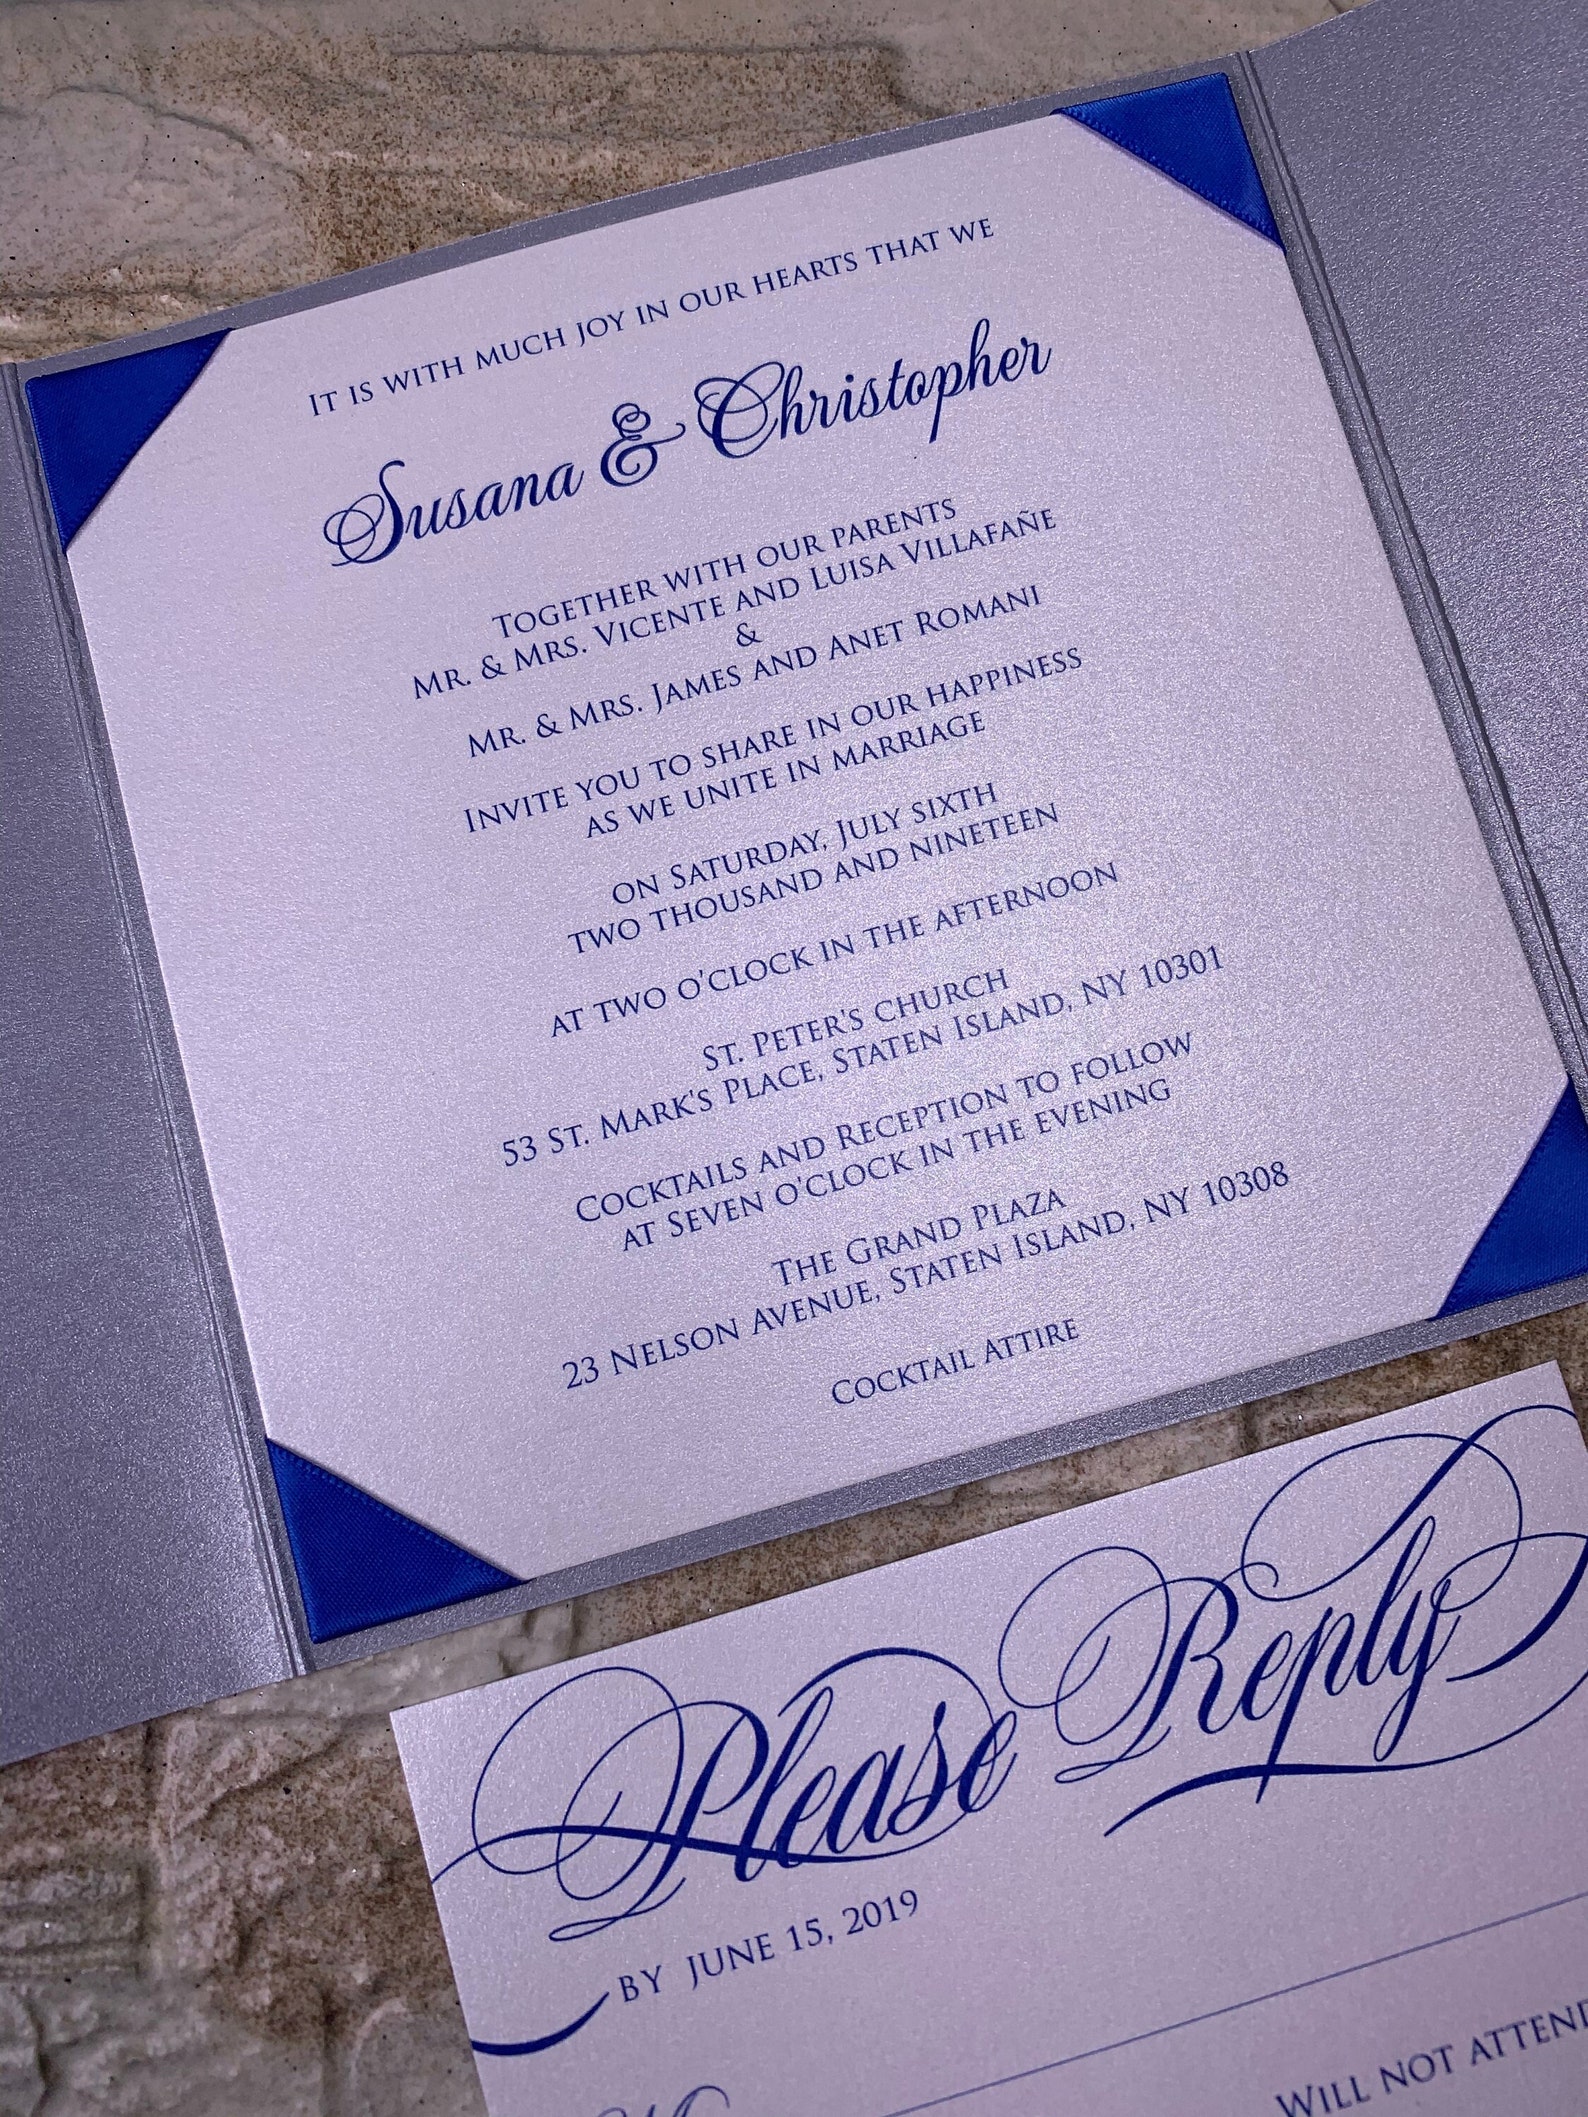 It is with much joy in our hearts that we
Susana & Christopher
Together with our parents
Mr. & Mrs. Vicente and Luisa Villafañe
&
Mr. & Mrs. James and Anet Romani
Invite you to share in our happiness
as we unite in marriage
on Saturday, July sixth
two thousand and nineteen
at two o'clock in the afternoon
St. Peter's church
53 St. Mark's Place, Staten Island, NY 10301
Cocktails and Reception to follow
at Seven o'clock in the evening
The Grand Plaza
23 Nelson Avenue, Staten Island, NY 10308
Cocktail Attire
Please Reply
by June 15, 2019
Will not attend